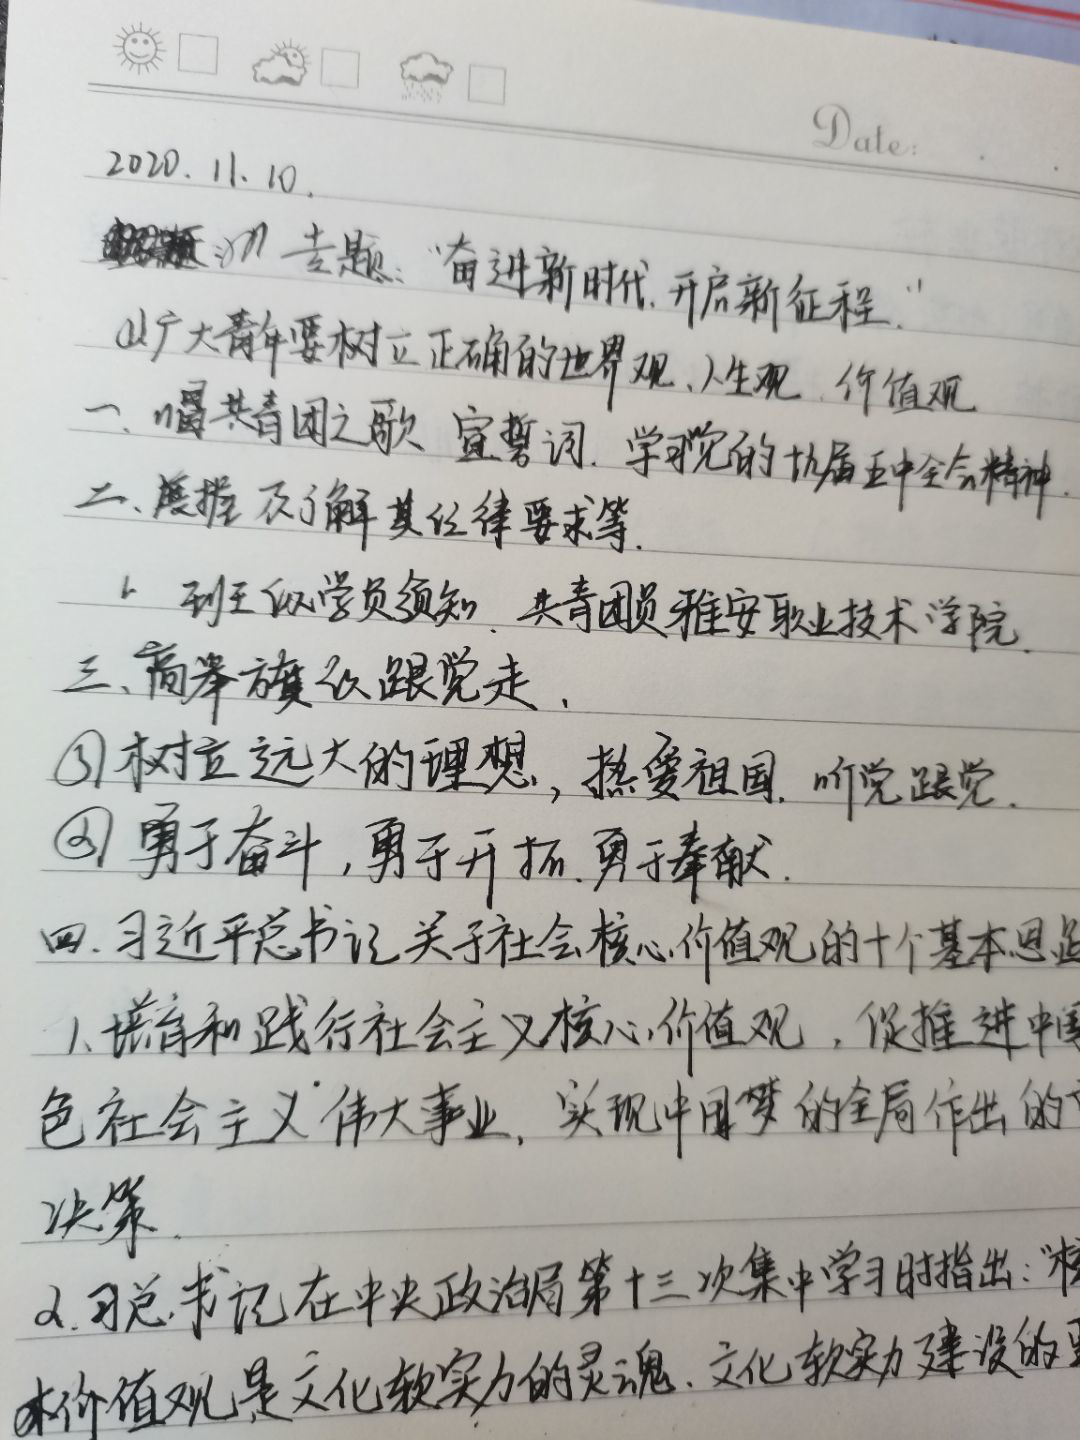 Date:
2020.11.10.
专题:“奋进新时代.开启新征程.”
广大青年要树立正确的世界观、人生观、价值观
一、唱共青团之歌 宣誓词. 学习党的十九届五中全会精神.
二、 及了解其纪律要求等.
1. 学员须知. 共青团员雅安职业技术学院.
三、高举旗 跟党走.
① 树立远大的理想, 热爱祖国. 听党跟党.
② 勇于奋斗, 勇于开拓. 勇于奉献.
四. 习近平总书记关于社会核心价值观的十个基本思
1、培育和践行社会主义核心价值观, 促推进中国
色社会主义伟大事业, 实现中国梦的全局作出的
决策.
2. 习总书记在中央政治局第十三次集中学习时指出:“核
价值观是文化软实力的灵魂. 文化软实力建设的